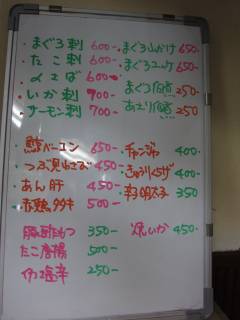 ・まぐろ刺 600-
・たこ刺 600-
・〆さば 600-
・いか刺 700-
・サーモン刺 700-
・まぐろ山かけ 650-
・まぐろユッケ 650-
・まぐろ 250
・あさり 250
・鯨ベーコン 650-
・つぶ貝わさび 450-
・あん肝 450-
・赤鶏タタキ 500-
・チャンジャ 400
・400
・辛子明太子 350
・焼いか 450-
豚酢もつ 350-
たこ唐揚 500-
いか塩辛 250-